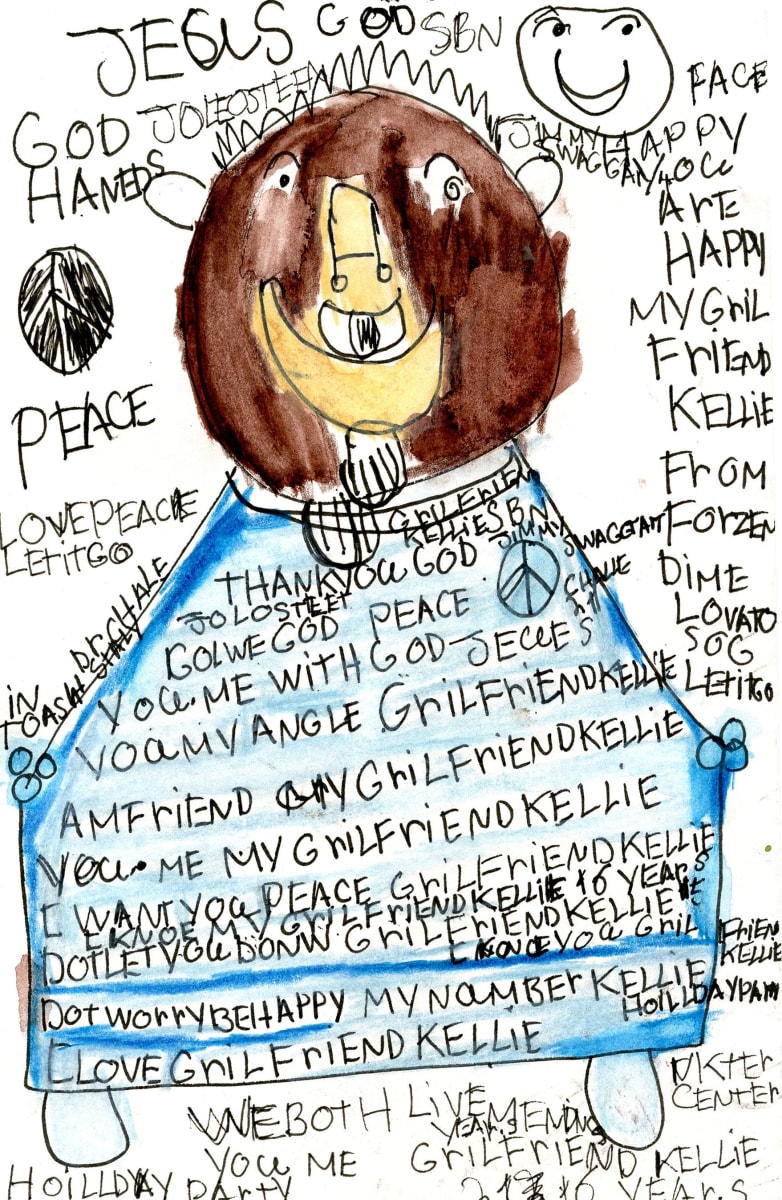 JESUS GOD SBN
GOD JOLEOSTEEN
HANEDS
FACE
JIMMY HAPPY
SWAGGAN YOU
ARE
HAPPY
MY GRIL
FRIEND
KELLIE
FROM
FORZEN
DIME
LOVATO
SOG
LETITGO
PEACE
LOVEPEACE
LETITGO
DR. CHALE
IN
GRILFRIEN
KELLIE SBN
JIMMY
SWAGGART
THANKYOU GOD
JOLOSTEET
GOLWE GOD PEACE
YOU ME WITH GOD-JECUES
YOU MY ANGLE GRILFRIENDKELLIE
AMFRIEND MY GRILFRIENDKELLIE
YOU ME MY GRILFRIENDKELLIE
I WANT YOU PEACE GRILFRIENDKELLIE
I KNOE MY GRILFRIENDKELLIE 16 YEARS
DOTLETYOUDONW GRILFRIENDKELLIE
YOU GRIL
FRIEN
KELLIE
DOTWORRYBEHAPPY MY NAMBER KELLIE
I LOVE GRILFRIENDKELLIE
CENTER
WE BOTH LIVE
YOU ME GRILFRIEND KELLIE
HOILLDAY PARTY YEARS